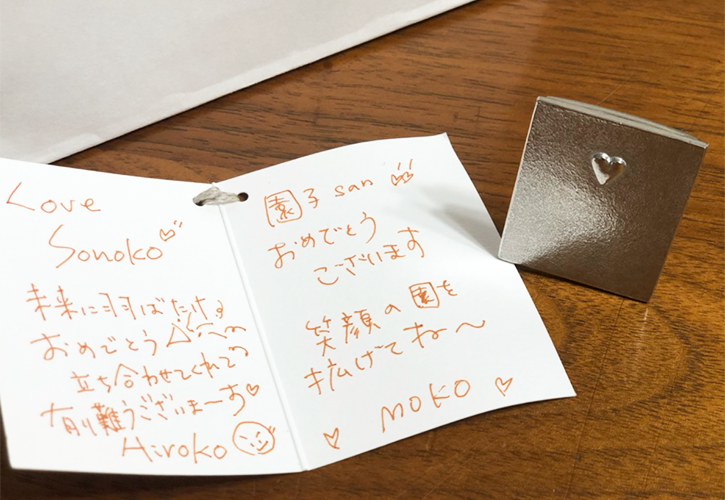 Love
Sonoko
未来に羽ばたける
おめでとう
立ち合わせてくれて
有難うございまーす
Hiroko
園子san
おめでとう
ございます
笑顔の園を
拡げてね〜
MOKO